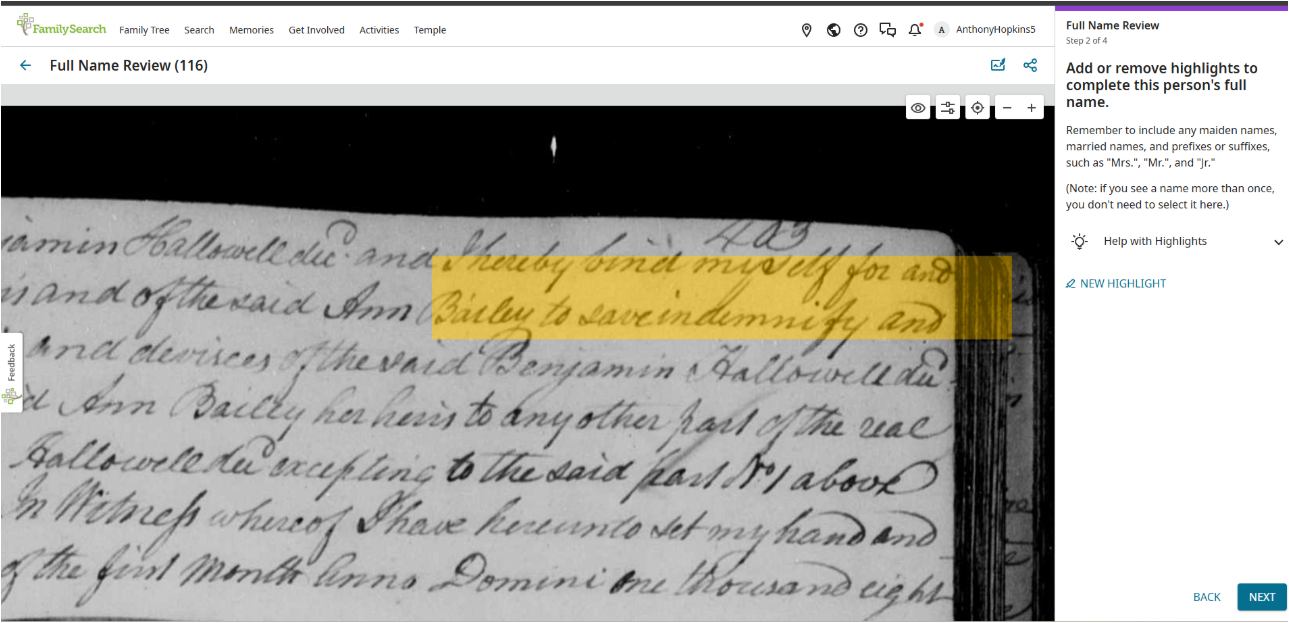 FamilySearch
Family Tree
Search
Memories
Get Involved
Activities
Temple
A
AnthonyHopkins5
Full Name Review (116)
Full Name Review
Step 2 of 4
Add or remove highlights to
complete this person's full
name.
Remember to include any maiden names,
married names, and prefixes or suffixes,
such as "Mrs.", "Mr.", and "Jr."
(Note: if you see a name more than once,
you don't need to select it here.)
Help with Highlights
NEW HIGHLIGHT
BACK
NEXT
Feedback
403
jamin Hallowell decd. and I hereby bind myself for and
and of the said Ann Bailey to save indemnify and
and devisees of the said Benjamin Hallowell decd.
d Ann Bailey her heirs to any other part of the real
Hallowell decd excepting to the said part No 1 above
In Witness whereof I have hereunto set my hand and
of the first Month Anno Domini one thousand eight